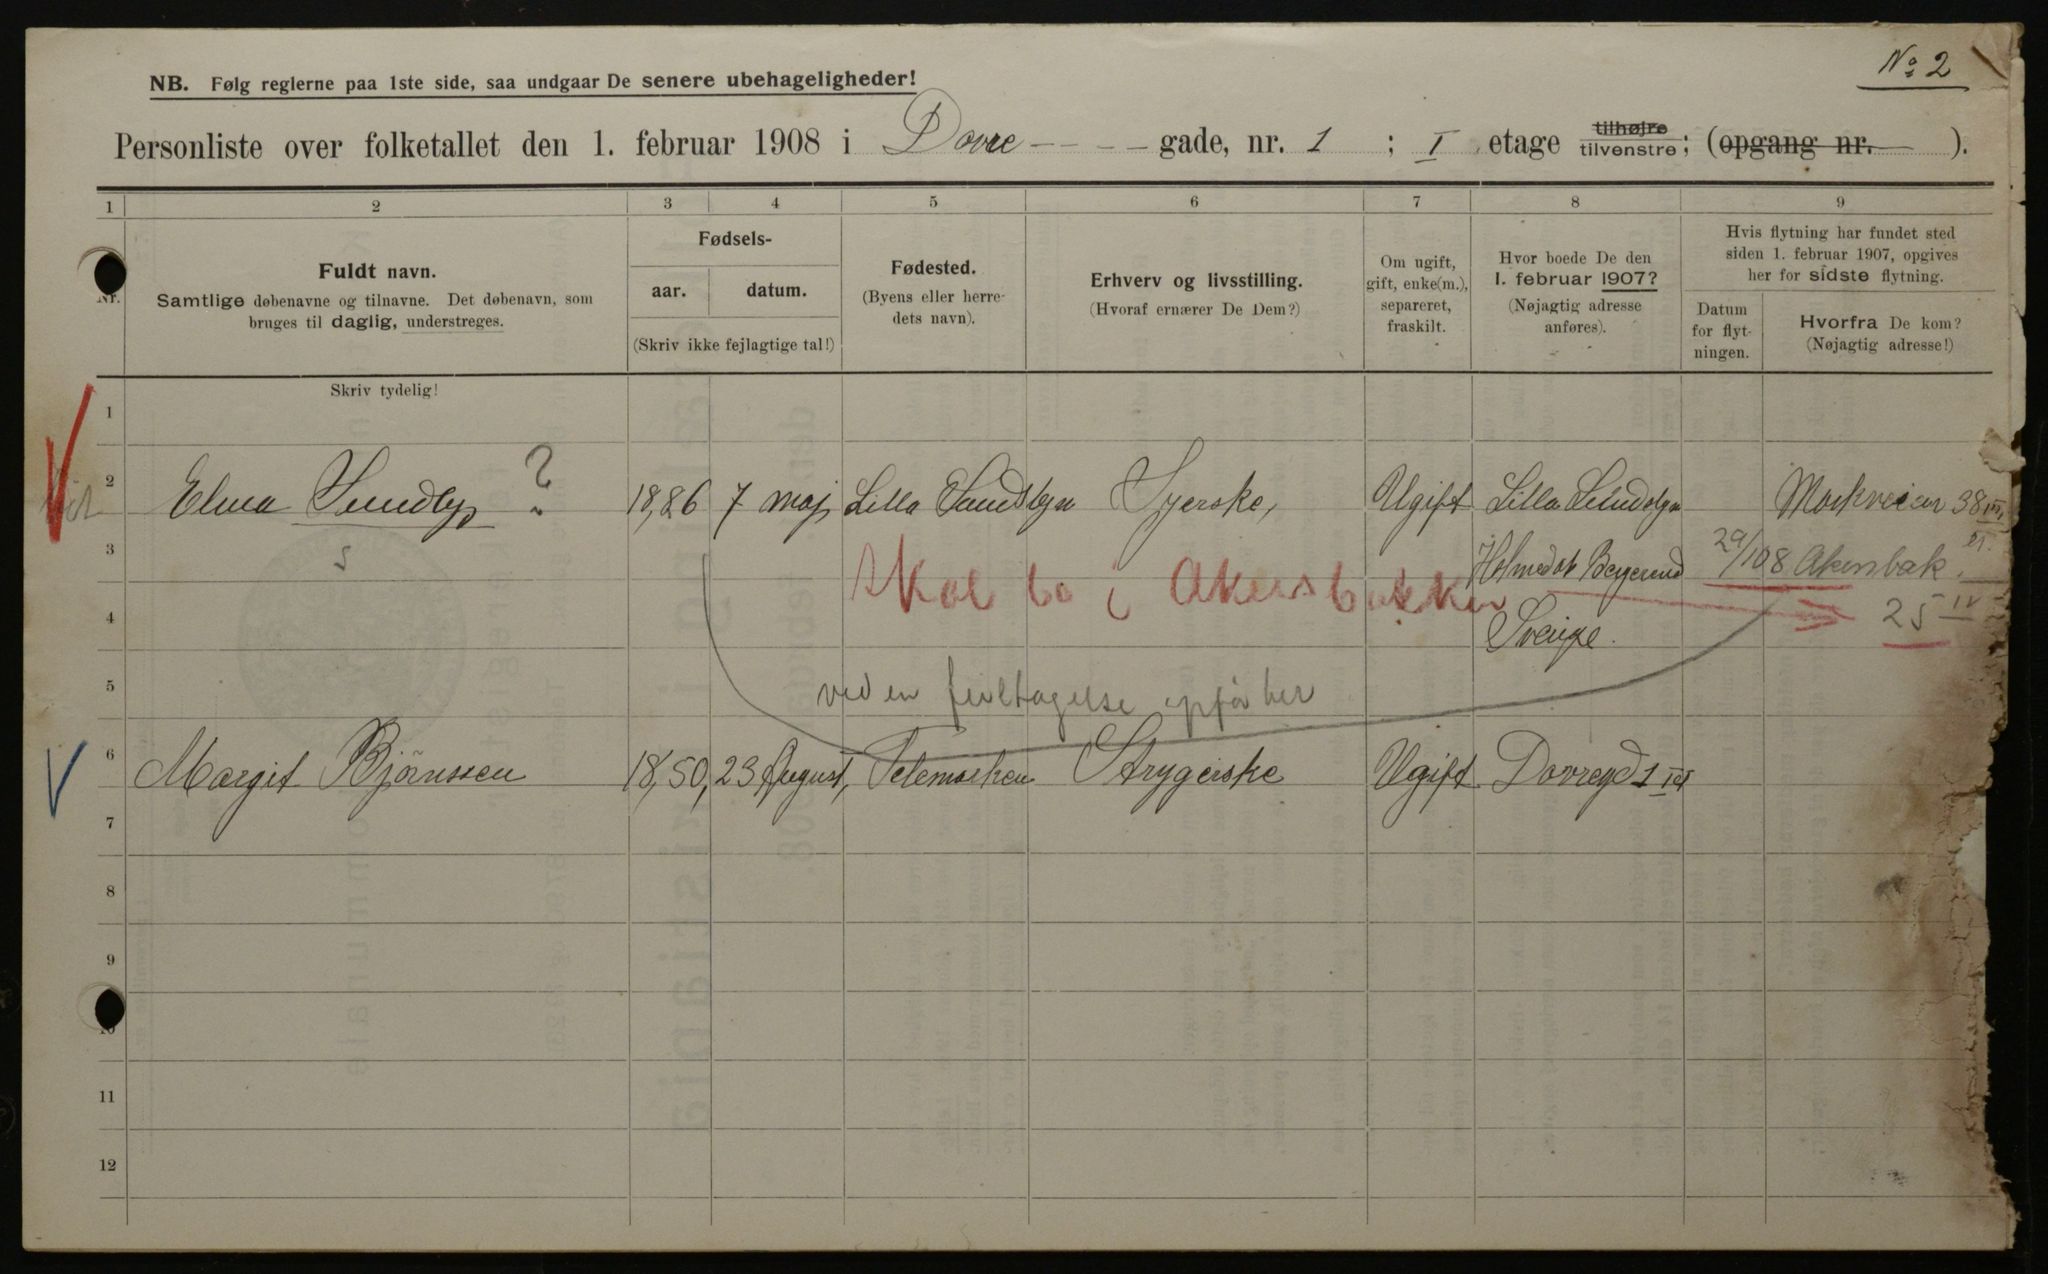 No 2
NB. Følg reglerne paa 1ste side, saa undgaar De senere ubehageligheder!
Personliste over folketallet den 1. februar 1908 i Dovre - - - - gade, nr. 1 ; I etage tilhøjre tilvenstre; (opgang nr. ).
1 2 3 4 5 6 7 8 9
Nr.
Fuldt navn.
Samtlige døbenavne og tilnavne. Det døbenavn, som
bruges til daglig, understreges.
Fødsels-
aar. datum.
(Skriv ikke fejlagtige tal!)
Fødested.
(Byens eller herre-
dets navn).
Erhverv og livsstilling.
(Hvoraf ernærer De Dem?)
Om ugift,
gift, enke(m.),
separeret,
fraskilt.
Hvor boede De den
1. februar 1907?
(Nøjagtig adresse
anføres).
Hvis flytning har fundet sted
siden 1. februar 1907, opgives
her for sidste flytning.
Datum
for flyt-
ningen.
Hvorfra De kom?
(Nøjagtig adresse!)
Skriv tydelig!
1
2 Elma Sundby ? 18,86 7 maj Lilla Sundsbyn Syerske, Ugift Lilla Sundsbyn Markveien 38 III
3 Holmedal 29/1 08 Akersbak. et.
skal bo i Akersbakken
4 Sverige. 25 IV
5 ved en feiltagelse opfør her
6 Margit Bjørnssen 18,50, 23 August, Telemarken Strygerske Ugift Dovregd 1 I et
7
8
9
10
11
12